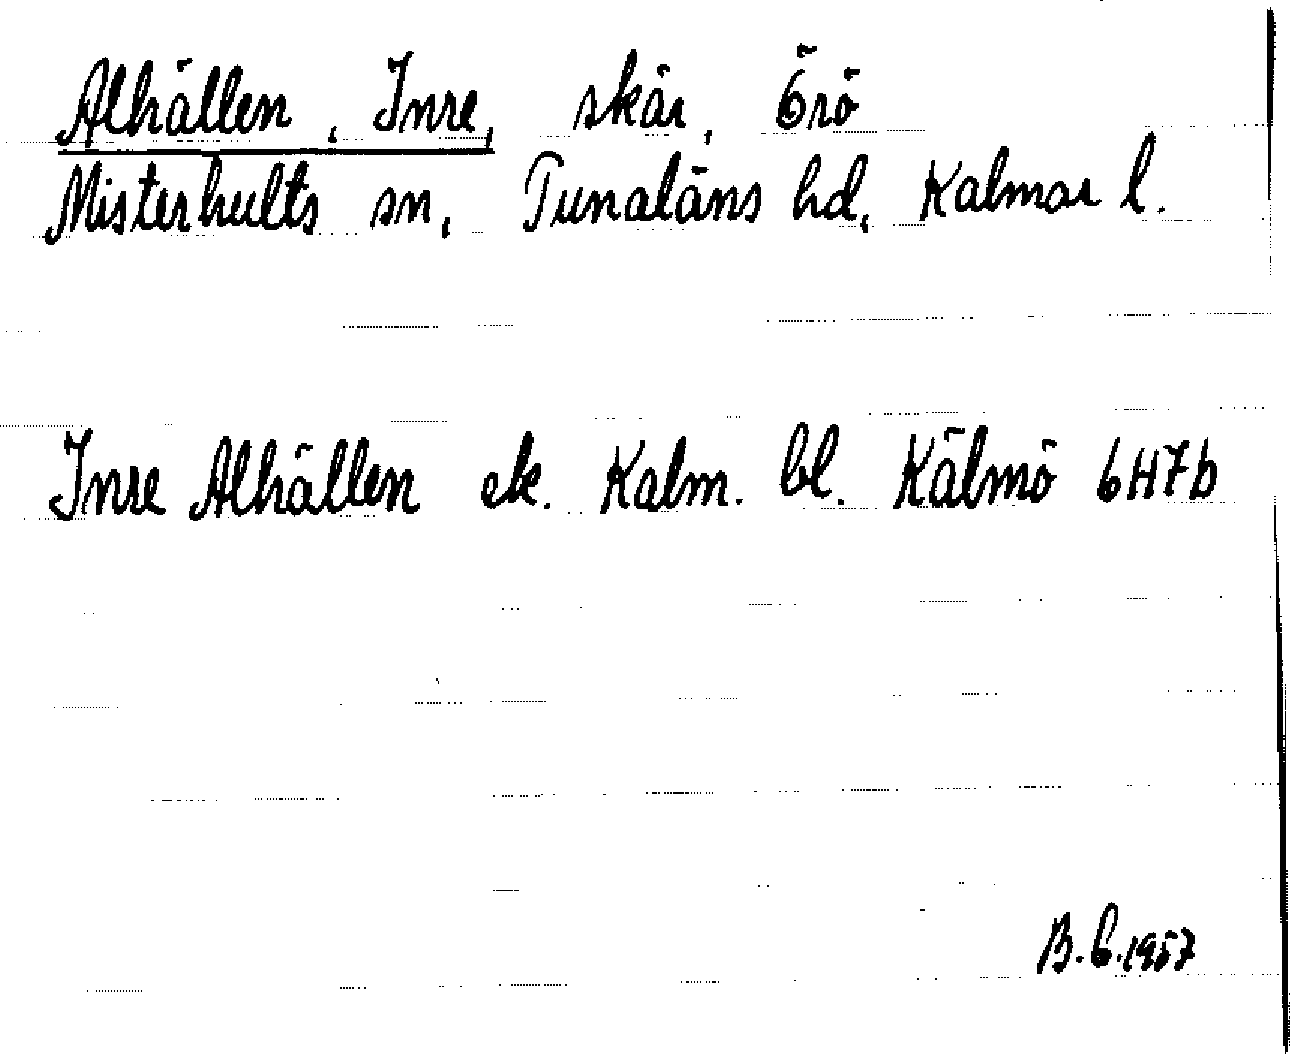 Alhällen, Inre, skär, Örö
Misterhults sn, Tunaläns hd, Kalmar l.
Inre Alhällen ek. Kalm. bl. Kälmö 6H7b
B.C.1957